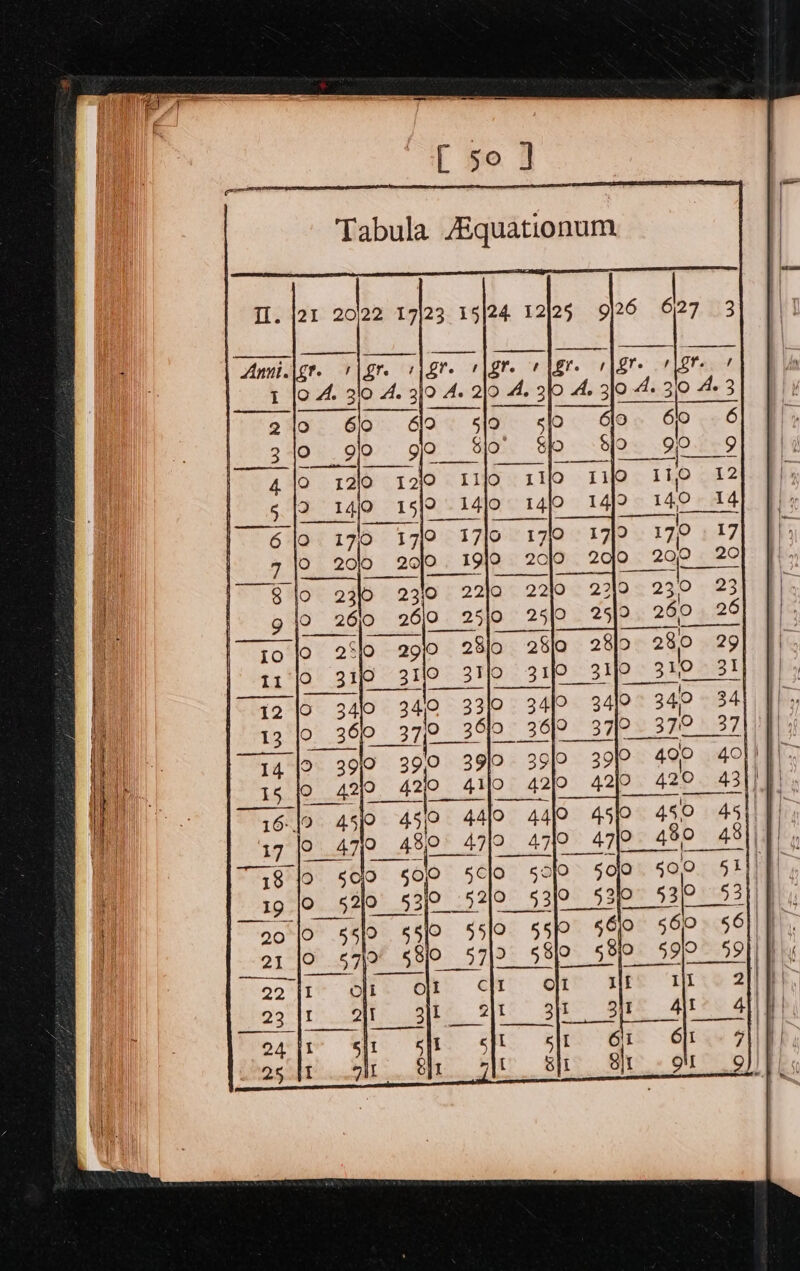 [ 50 ]
Tabula Æquationum
II. 21 20 22 17 23 15 24 12 25 9 26 6 27 3
Anni. gr. ′ gr. ′ gr. ′ gr. ′ gr. ′ gr. ′ gr. ′
1 0 A. 3 0 A. 3 0 A. 2 0 A. 3 0 A. 3 0 A. 3 0 A. 3
2 0 6 0 6 0 5 0 5 0 6 0 6 0 6
3 0 9 0 9 0 8 0 8 0 8 0 9 0 9
4 0 12 0 12 0 11 0 11 0 11 0 11 0 12
5 0 14 0 15 0 14 0 14 0 14 0 14 0 14
6 0 17 0 17 0 17 0 17 0 17 0 17 0 17
7 0 20 0 20 0 19 0 20 0 20 0 20 0 20
8 0 23 0 23 0 22 0 22 0 22 0 23 0 23
9 0 26 0 26 0 25 0 25 0 25 0 26 0 26
10 0 28 0 29 0 28 0 28 0 28 0 28 0 29
11 0 31 0 31 0 31 0 31 0 31 0 31 0 31
12 0 34 0 34 0 33 0 34 0 34 0 34 0 34
13 0 36 0 37 0 36 0 36 0 37 0 37 0 37
14 0 39 0 39 0 39 0 39 0 39 0 40 0 40
15 0 42 0 42 0 41 0 42 0 42 0 42 0 43
16 0 45 0 45 0 44 0 44 0 45 0 45 0 45
17 0 47 0 48 0 47 0 47 0 47 0 48 0 48
18 0 50 0 50 0 50 0 50 0 50 0 50 0 51
19 0 52 0 53 0 52 0 53 0 53 0 53 0 53
20 0 55 0 55 0 55 0 55 0 56 0 56 0 56
21 0 57 0 58 0 57 0 58 0 58 0 59 0 59
22 1 0 1 0 1 0 1 0 1 1 1 1 1 2
23 1 2 1 3 1 2 1 3 1 3 1 4 1 4
24 1 5 1 5 1 5 1 5 1 6 1 6 1 7
25 1 7 1 8 1 7 1 8 1 8 1 9 1 9